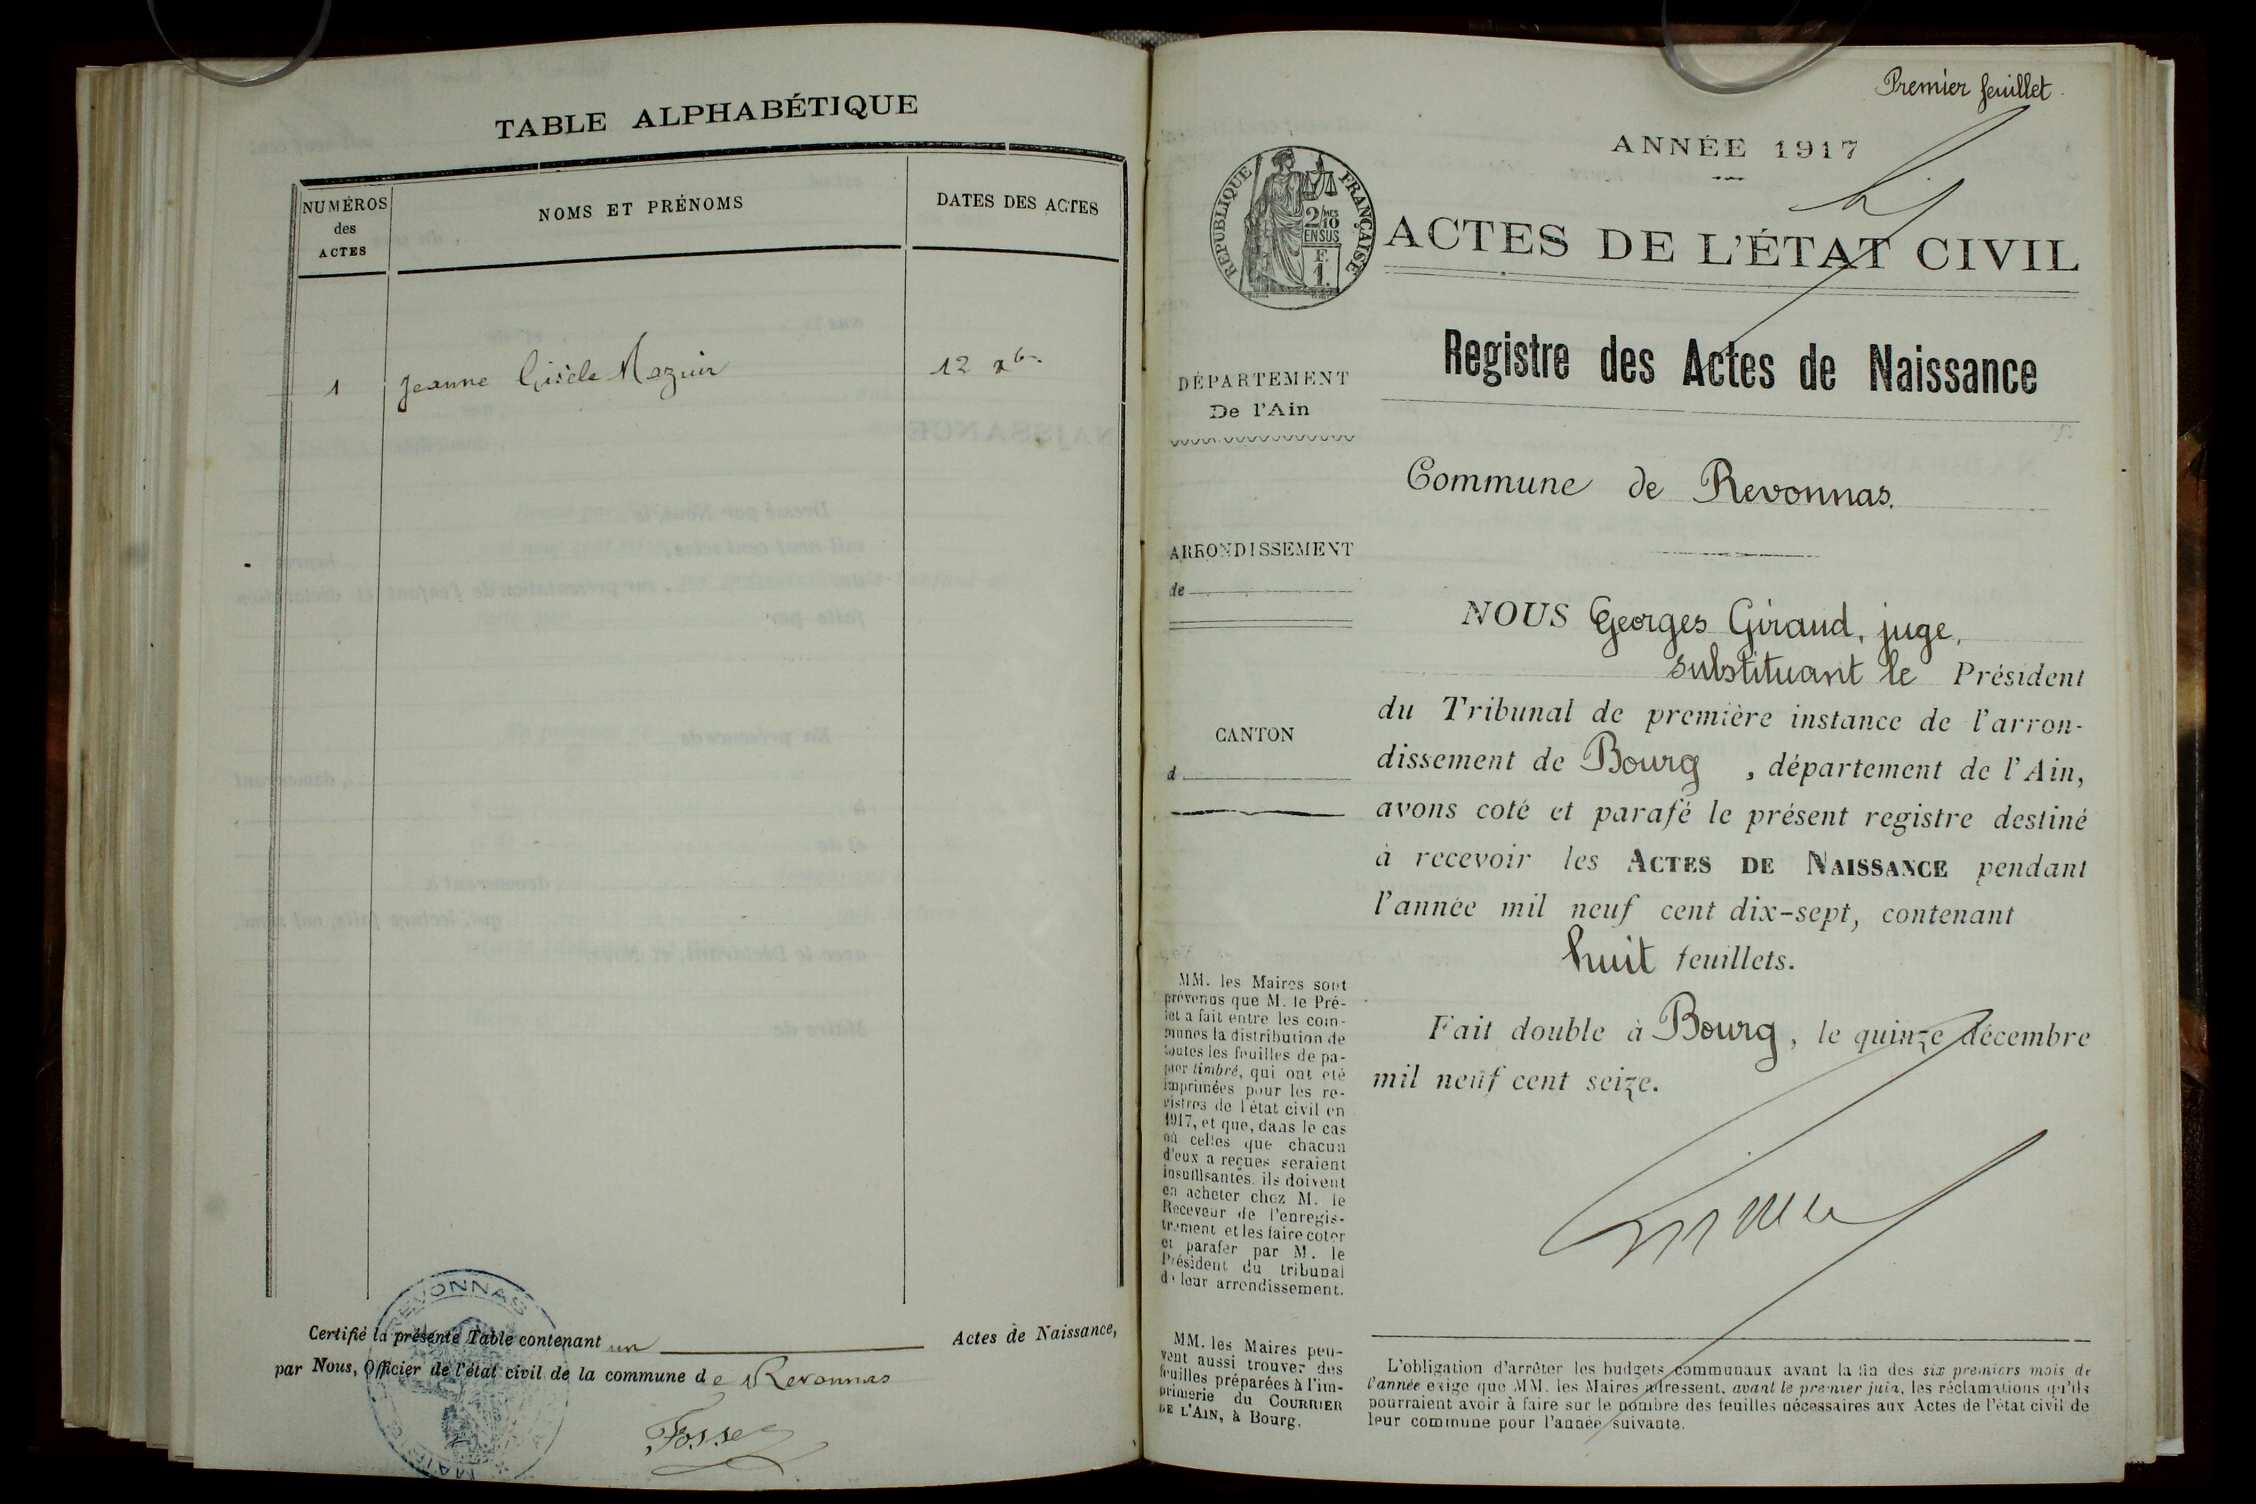 TABLE ALPHABÉTIQUE
NUMÉROS
des
ACTES
NOMS ET PRÉNOMS
DATES DES ACTES
1 Jeanne Gisèle Mazuir 12 xbre
REVONNAS
MAIRIE
Certifié la présente Table contenant un Actes de Naissance,
par Nous, Officier de l'état civil de la commune de Revonnas
Premier feuillet.
ANNÉE 1917
RÉPUBLIQUE FRANÇAISE
2/10MES
EN SUS
F.
1.
ACTES DE L'ÉTAT CIVIL
Registre des Actes de Naissance
DÉPARTEMENT
De l'Ain
Commune de Revonnas.
ARRONDISSEMENT
de
CANTON
d
NOUS Georges Giraud, juge,
substituant le Président
du Tribunal de première instance de l'arron-
dissement de Bourg, département de l'Ain,
avons coté et parafé le présent registre destiné
à recevoir les ACTES DE NAISSANCE pendant
l'année mil neuf cent dix-sept, contenant
huit feuillets.
Fait double à Bourg, le quinze décembre
mil neuf cent seize.
MM. les Maires sont
prévenus que M. le Pré-
fet a fait entre les com-
munes la distribution de
toutes les feuilles de pa-
pier timbré, qui ont été
imprimées pour les re-
gistres de l'état civil en
1917, et que, dans le cas
où celles que chacun
d'eux a reçues seraient
insuffisantes, ils doivent
en acheter chez M. le
Receveur de l'enregis-
trement et les faire coter
et parafer par M. le
Président du tribunal
de leur arrondissement.
MM. les Maires peu-
vent aussi trouver des
feuilles préparées à l'im-
primerie du COURRIER
DE L'AIN, à Bourg.
L'obligation d'arrêter les budgets communaux avant la fin des six premiers mois de
l'année exige que MM. les Maires adressent, avant le premier juin, les réclamations qu'ils
pourraient avoir à faire sur le nombre des feuilles nécessaires aux Actes de l'état civil de
leur commune pour l'année suivante.